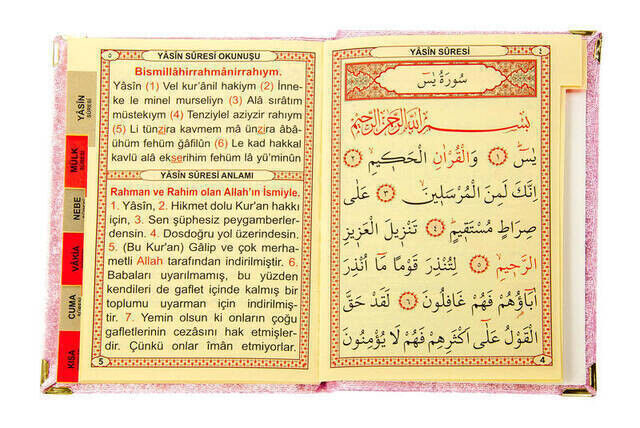 YÂSÎN SÛRESİ OKUNUŞU
٥
Bismillâhirrahmânirrahıym.
Yâsîn (1) Vel kur'ânil hakiym (2) İnne-
ke le minel murseliyn (3) Alâ sırâtım
müstekıym (4) Tenziylel aziyzir rahıym
(5) Li tünzira kavmem mâ ünzira âbâ-
ühüm fehüm ğâfilûn (6) Le kad hakkal
kavlü alâ ekserihim fehüm lâ yü'minûn
YÂSÎN SÛRESİ ANLAMI
Rahman ve Rahim olan Allah'ın İsmiyle.
1. Yâsîn, 2. Hikmet dolu Kur'an hakkı
için, 3. Sen şüphesiz peygamberler-
densin. 4. Dosdoğru yol üzerindesin.
5. (Bu Kur'an) Gâlip ve çok merha-
metli Allah tarafından indirilmiştir. 6.
Babaları uyarılmamış, bu yüzden
kendileri de gaflet içinde kalmış bir
toplumu uyarman için indirilmiş-
tir. 7. Yemin olsun ki onların çoğu
gafletlerinin cezasını hak etmişler-
dir. Çünkü onlar îmân etmiyorlar.
5
YÂSÎN SÛRESİ
MÜLK SÛRESİ
NEBE
VÂKIA
CUMA
KISA
YÂSİN SÛRESİ
٤
سُورَةُ يٰسٓ
بِسْمِ اللّٰهِ الرَّحْمٰنِ الرَّحِيمِ
يٰسٓ ﴿١﴾ وَالْقُرْاٰنِ الْحَكِيمِ ﴿٢﴾
اِنَّكَ لَمِنَ الْمُرْسَلِينَ ﴿٣﴾ عَلٰى
صِرَاطٍ مُسْتَقِيمٍ ﴿٤﴾ تَنْزِيلَ الْعَزِيزِ
الرَّحِيمِ ﴿٥﴾ لِتُنْذِرَ قَوْمًا مَٓا اُنْذِرَ
اٰبَٓاؤُ۬هُمْ فَهُمْ غَافِلُونَ ﴿٦﴾ لَقَدْ حَقَّ
الْقَوْلُ عَلٰٓى اَكْثَرِهِمْ فَهُمْ لَا يُؤْمِنُونَ
4